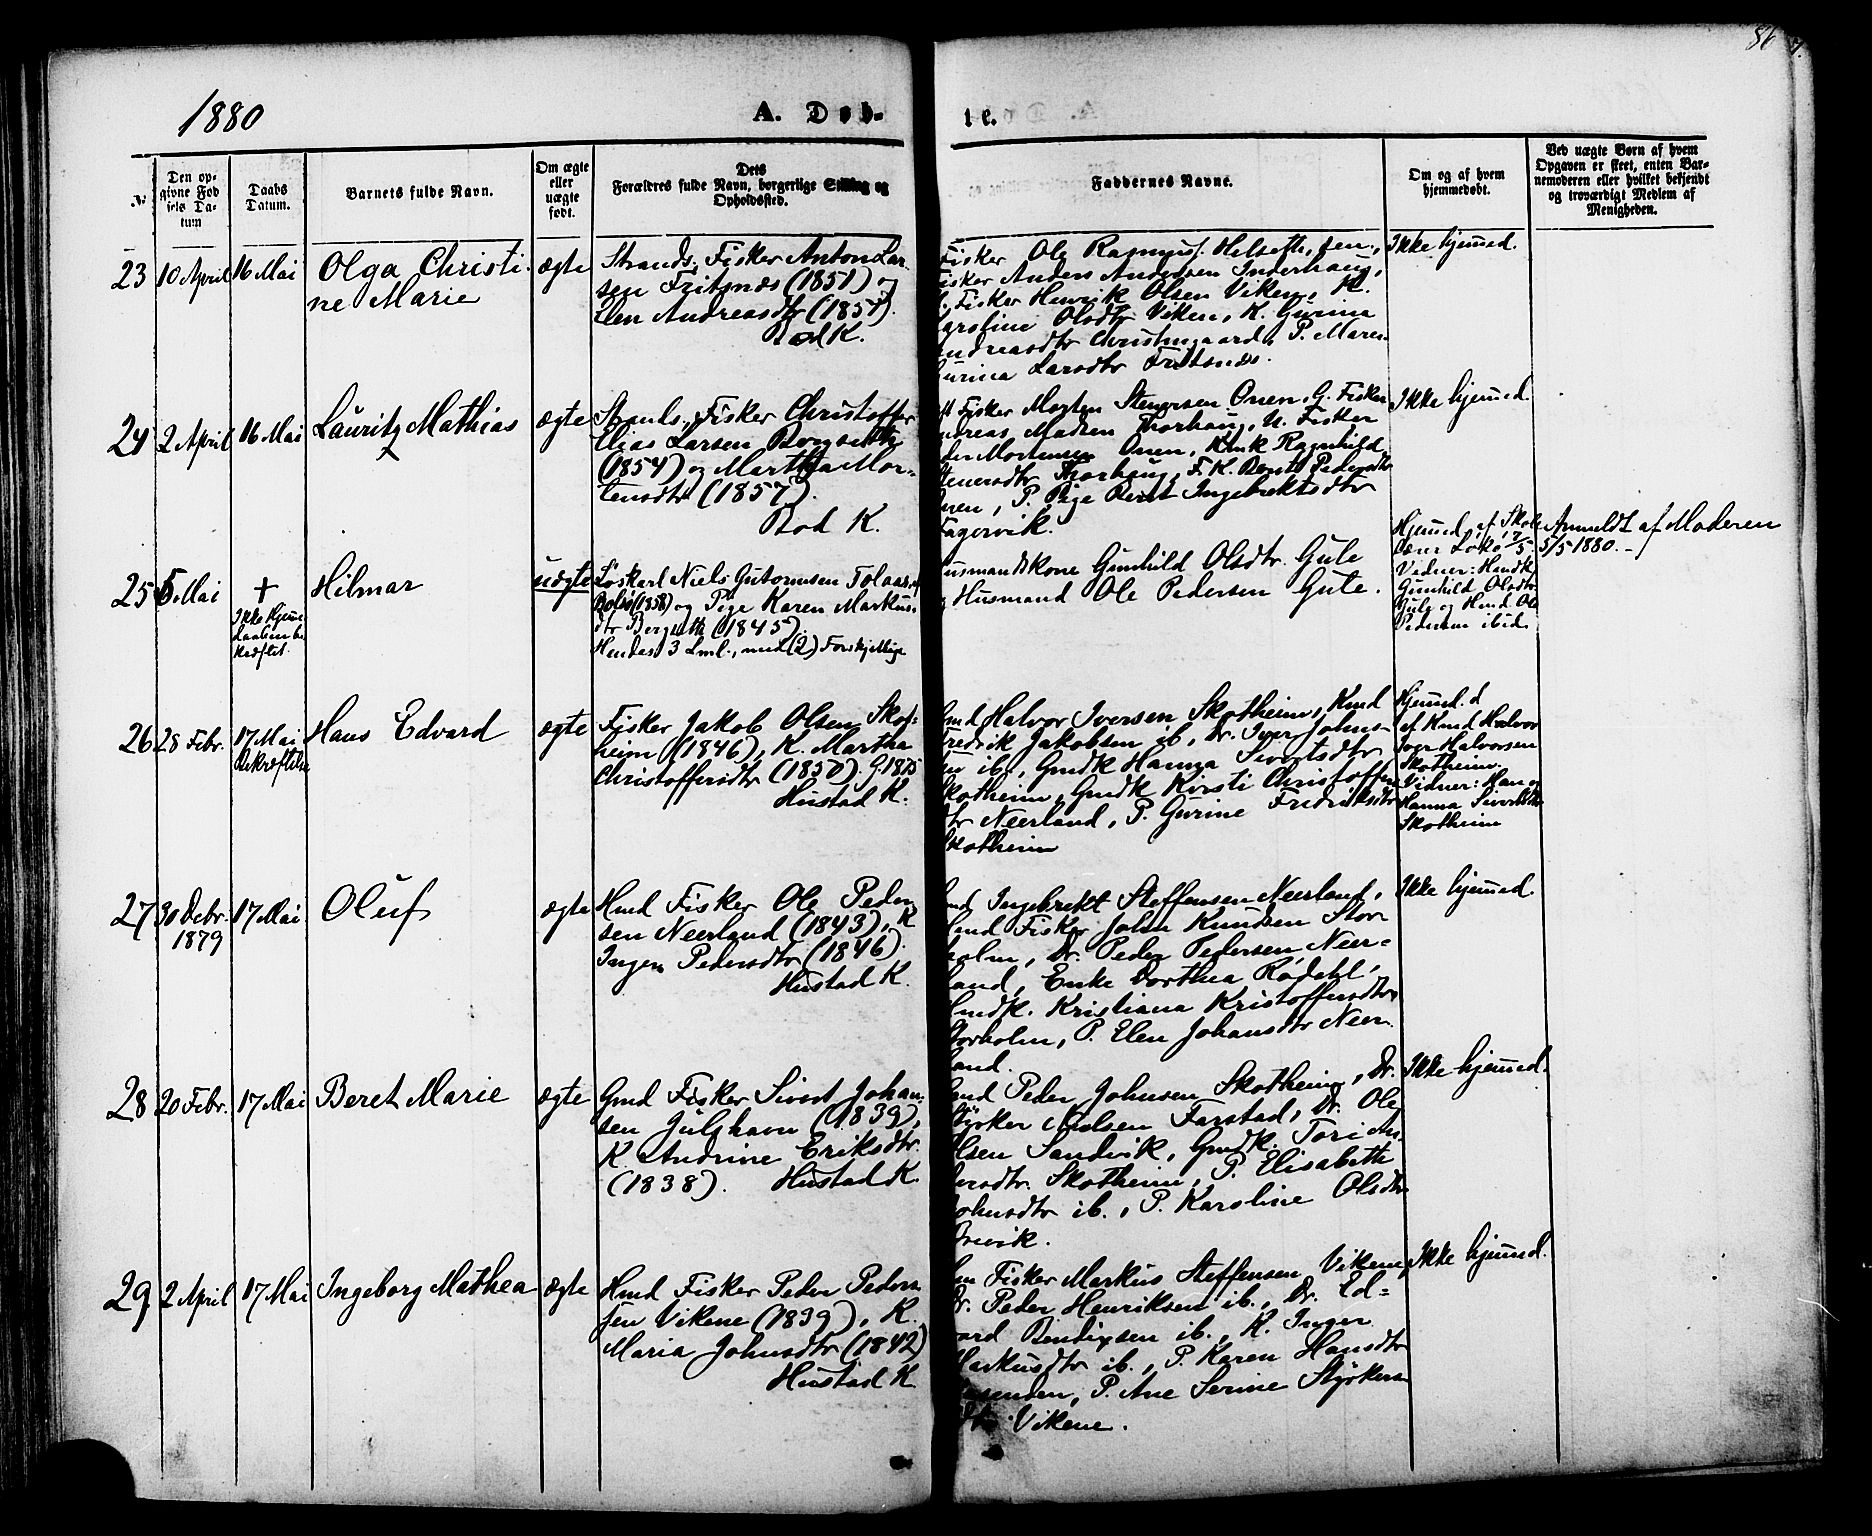 1880
A. Døb-
te.
№
Den op-
givne Fød-
sels Da-
tum
Daabs
Datum.
Barnets fulde Navn.
Om ægte
eller
uægte
født.
Dets
Forældres fulde Navn, borgerlige Stilling og
Opholdssted.
Faddernes Navne.
Om og af hvem
hjemmedøbt.
Ved uægte Børn af hvem
Opgaven er skeet, enten Bar-
nemoderen eller hvilket bekjendt
og troværdigt Medlem af
Menigheden.
23
10 April
16 Mai
Olga Christi-
ne Marie
ægte
Strands. Fisker Anton Lar-
sen Fritsnes (1851) og
Elen Andreasdtr (1857).
Bod K.
Fisker Ole Rasmuss. Helseth, sen.,
Fisker Anders Andersen Inderhaug,
Fisker Henrik Olsen Viken, K.
Karoline Olsdtr Viken, K. Gurine
Andreasdtr Christengaard, P. Maren
Gurina Larsdtr Fritsnes.
Ikke hjemmed.
24
2 April
16 Mai
Lauritz Mathias
ægte
Strands. Fisker Christoffer
Elias Larsen Bergseth
(1854) og Martha Mor-
tensdtr (1857).
Bod K.
Fisker Morten Stenersen Onen, G. Fisker
Andreas Madsen Thorhaug, U. Fisker
Peder Mortensen Onen, Kmk Ragnhild
Stenersdtr Thorhaug, F. K. Berit Pedersdtr
Onen, P. Pige Berit Ingebrektsdtr
Fagervik.
Ikke hjemmed.
25
5 Mai
+
Ikke Hjemme-
daaben be-
kræftet.
Hilmar
uægte
Løskarl Niels Gutormsen Tolaas
(1858) og Pige Karen Markus-
dtr Bergseth (1845)
Hendes 3 Lml., med (2) Forskjellige
Husmandskone Gunhild Olsdtr. Gule
og Husmand Ole Pedersen Gule.
Hjemmed. af Skole-
lærer Løkø 7/5
Vidner: Hmdk
Gunhild Olsdtr
Gule og Hmd Ole
Pedersen ibid.
Anmeldt af Moderen
5/5 1880. -
26
28 Febr.
17 Mai
Bekræftelse
Hans Edvard
ægte
Fisker Jakob Olsen Skot-
heim (1846), K. Martha
Christoffersdtr (1850). G. 1875
Hustad K.
Gmd Halvor Iversen Skotheim, Kmd
Fredrik Jakobsen ib., Dr. Iver Johns-
sen ib., Gmdk Hanna Sivertsdtr
Skotheim, Gmdk Kirsti Christoffers-
dtr Neerland, P. Gurine Fredriksdtr
Skotheim
Hjemmed.
af Kmd Halvor
Iver Halvorsen
Skotheim.
Vidner: Han og
Hanna Sivertsdtr
Skotheim
27
30 Debr.
1879
17 Mai
Oluf
ægte
Hmd Fisker Ole Peder-
sen Neerland (1843), K
Ingen Pedersdtr (1846).
Hustad K.
Hmd Ingebrekt Steffensen Neerland,
Hmd Fisker John Knudsen Stor-
holm, Dr. Peder Pedersen Neer-
land, Enke Dorthea Rødahl,
Hmdk. Kristiana Kristoffersdtr
Storholm, P. Elen Johansdtr Neer-
land.
Ikke hjemmed.
28
20 Febr.
17 Mai
Beret Marie
ægte
Gmd Fisker Sivert Johan-
sen Julshavn (1839),
K. Andrine Eriksdtr.
(1838). Hustad K.
Gmd Peder Johnsen Skotheim, Dr.
Styrker Nielsen Farstad, Dr. Ole
Olsen Sandvik, Gmdk. Tori An-
dersdtr. Skotheim, P. Elisabeth
Johnsdtr ib., P. Karoline Olsdtr
Ikke hjemmed.
29
2 April
17 Mai
Ingeborg Mathea
ægte
Hmd Fisker Peder Peder-
sen Vikene (1839), K.
Maria Johnsdtr (1842)
Hustad K
Fisker Markus Steffensen Vikene,
Dr. Peder Henriksen ib., Dr. Ed-
vard Bendixsen ib., K. Inger
Markusdtr ib., P. Karen Hansdtr
P. Ane Serine Styrkers-
dtr Vikene.
Ikke hjemmed.